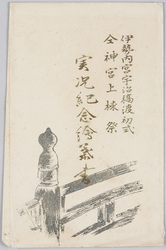 伊勢内宮宇治橋渡初式
仝神宮上棟祭
実況紀念繪葉書